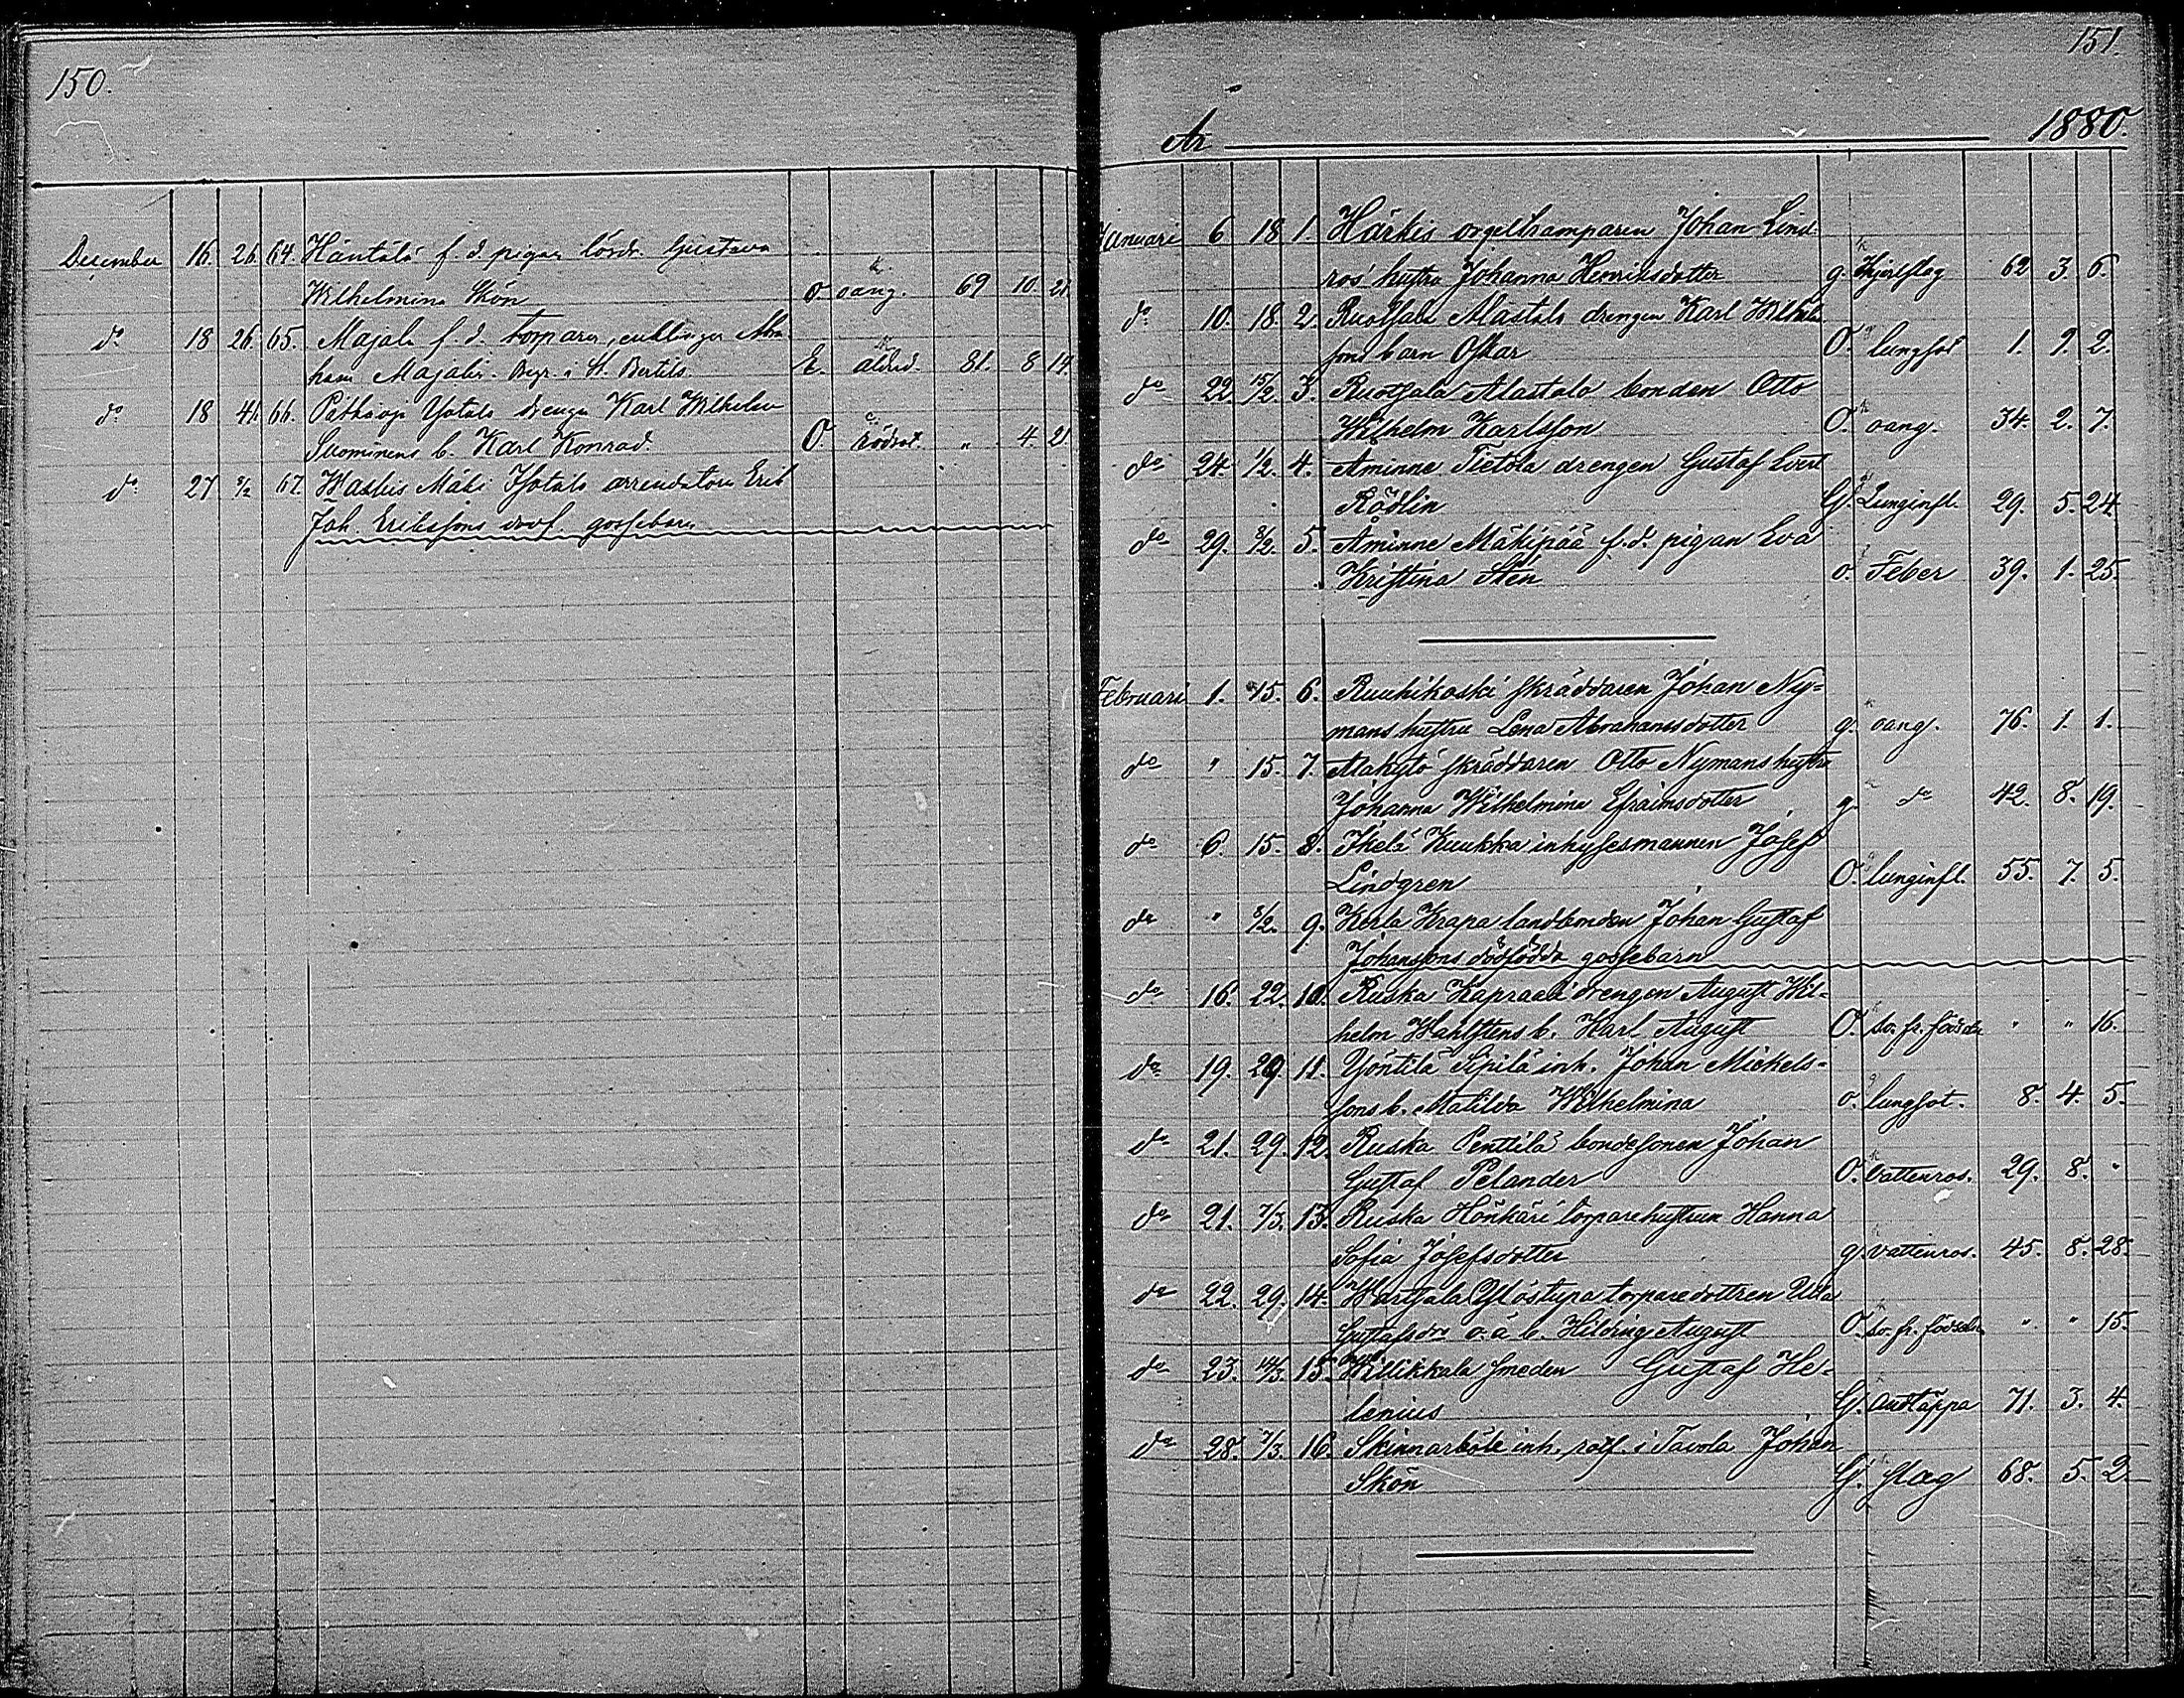 150.
December 16. 26. 64. Häntälä f. d. pigan lösdr. Gustava
Wilhelmina Skön o. oang. 69 10 21.
do 18 26. 65. Majala f. d. torparen, enklingen Abra-
ham Majalin. Begr. i St. Bertils. E. ålderd. 81. 8 19.
do 18 4/1 66. Pathkoja Yotala drengen Karl Wilhelm
Suominens b. Karl Konrad. O. rödsot. " 4. 21.
do 27 9/2 67. Waskis Mäki Isotalo arrendatorn Erik
Joh. Erikssons dödf. gossebarn
151.
År 1880.
Januari 6 18 1. Härkis orgeltramparen Johan Lind-
ros' hustru Johanna Henriksdotter g. Hjertslag 62 3. 6.
do 10. 18. 2. Ruotsala Alastalo drengen Karl Wilhelms-
sons barn Oskar O. lungsot 1. 9. 2.
do 22. 15/2. 3. Ruotsala Alastalo bonden Otto
Wilhelm Karlsson O. oang. 34. 2. 7.
do 24. 1/2. 4. Åminne Tietola drengen Gustaf Evert
Rödlin G. Lunginfl. 29. 5. 24.
do 29. 8/2. 5. Åminne Mäkipää f. d. pigan Eva
Kristina Sten o. Feber 39. 1. 25.
Februari 1. 15. 6. Ruuhikoski skräddaren Johan Ny=
mans hustru Lena Abrahamsdotter g. oang. 76. 1. 1.
do " 15. 7. Alakylö skräddaren Otto Nymans hustru
Johanna Wilhelmina Efraimsdotter g. do 42. 8. 19.
do 6. 15. 8. Ihelä Kuukka inhysesmannen Josef
Lindgren O. lunginfl. 55. 7. 5.
do " 8/2. 9. Kerla Krapa landbonden Johan Gustaf
Johanssons dödfödda gossebarn
do 16. 22. 10. Ruska Kapraali drengen August Wil=
helm Wahlstens b. Karl August O. so. fr. födseln " " 16.
do 19. 29 11. Yöntilä Sipilä inh. Johan Mickels-
sons b. Matilda Wilhelmina o. lungsot. 8. 4. 5.
do 21. 29. 12. Ruska Penttilä bondesonen Johan
Gustaf Pelander O. vattensot. 29. 8. "
do 21. 7/3. 13. Ruska Hönkäri torparehustrun Hanna
Sofia Josefsdotter g. vattensot. 45. 8. 28.
do 22. 29. 14. Wartsala Ylöstupa torparedottren Ulla
Gustafsdr o. ä b. Hilding August O. so. fr. födseln " " 15.
do 23. 14/3. 15. Willikkala smeden Gustaf He=
lenius G. andtäppa 71. 3. 4.
do 28. 7/3. 16. Skinnarböle inh. rotf. i Tavola Johan
Skön G. slag 68. 5. 2.